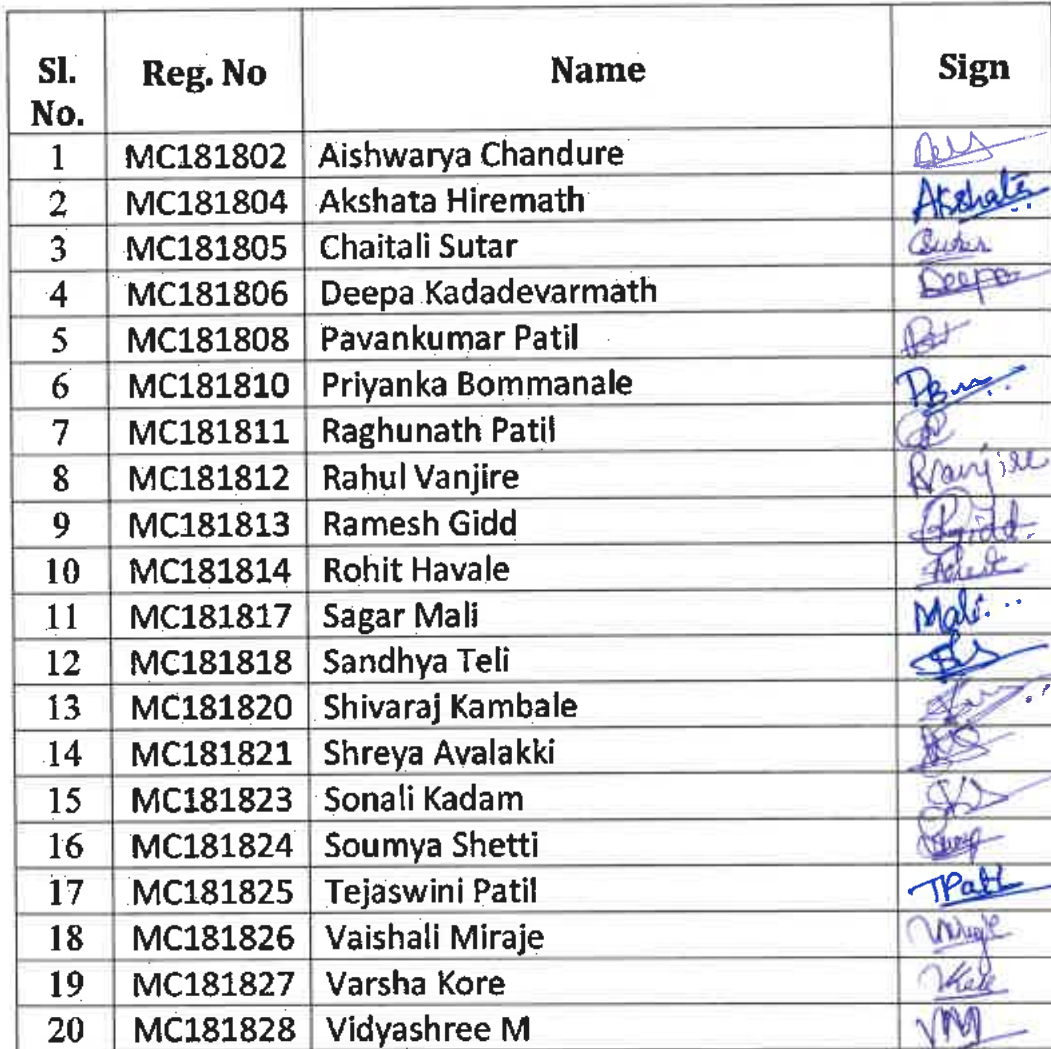 Sl. No. Reg. No Name Sign
1 MC181802 Aishwarya Chandure
2 MC181804 Akshata Hiremath Akshata
3 MC181805 Chaitali Sutar Sutar
4 MC181806 Deepa Kadadevarmath Deepa
5 MC181808 Pavankumar Patil
6 MC181810 Priyanka Bommanale
7 MC181811 Raghunath Patil
8 MC181812 Rahul Vanjire RVanjire
9 MC181813 Ramesh Gidd RGidd.
10 MC181814 Rohit Havale
11 MC181817 Sagar Mali Mali...
12 MC181818 Sandhya Teli
13 MC181820 Shivaraj Kambale
14 MC181821 Shreya Avalakki
15 MC181823 Sonali Kadam
16 MC181824 Soumya Shetti
17 MC181825 Tejaswini Patil TPatil
18 MC181826 Vaishali Miraje
19 MC181827 Varsha Kore
20 MC181828 Vidyashree M VM